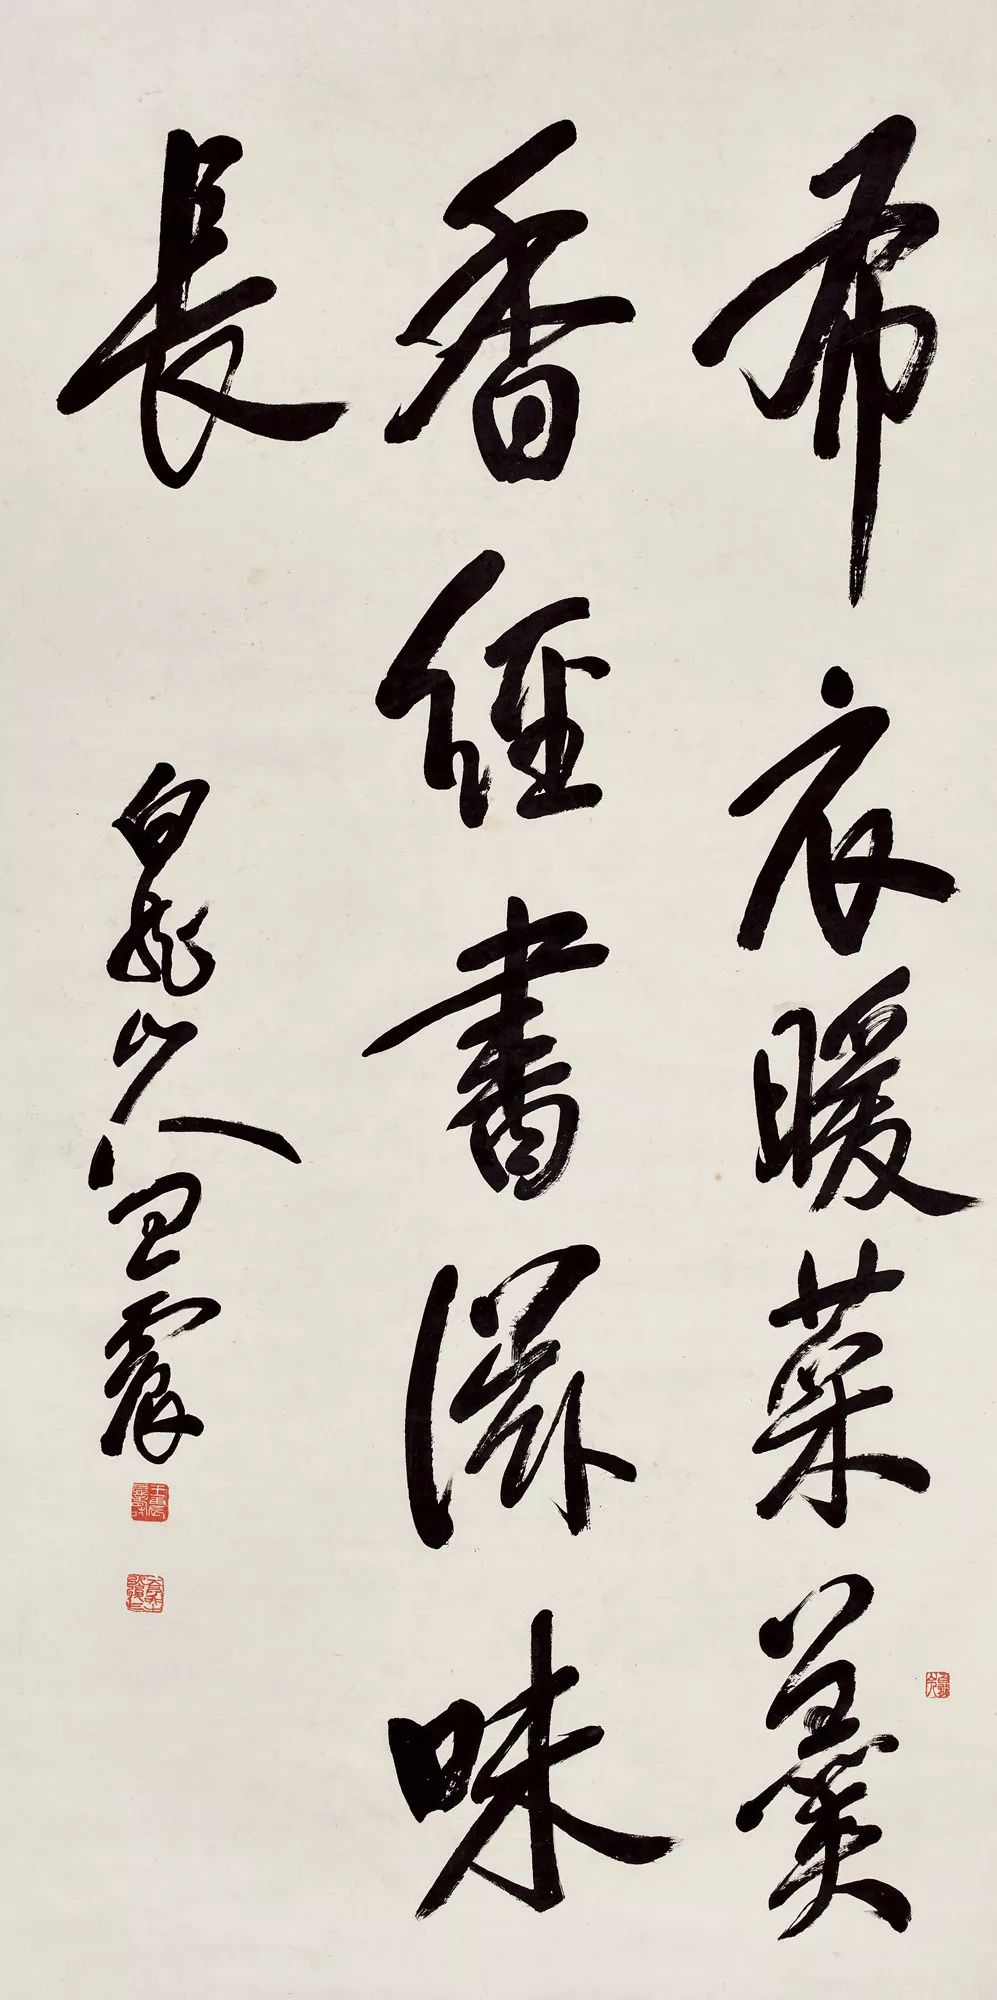 布衣暖菜羹
香經書滋味
長
白龍山人王震